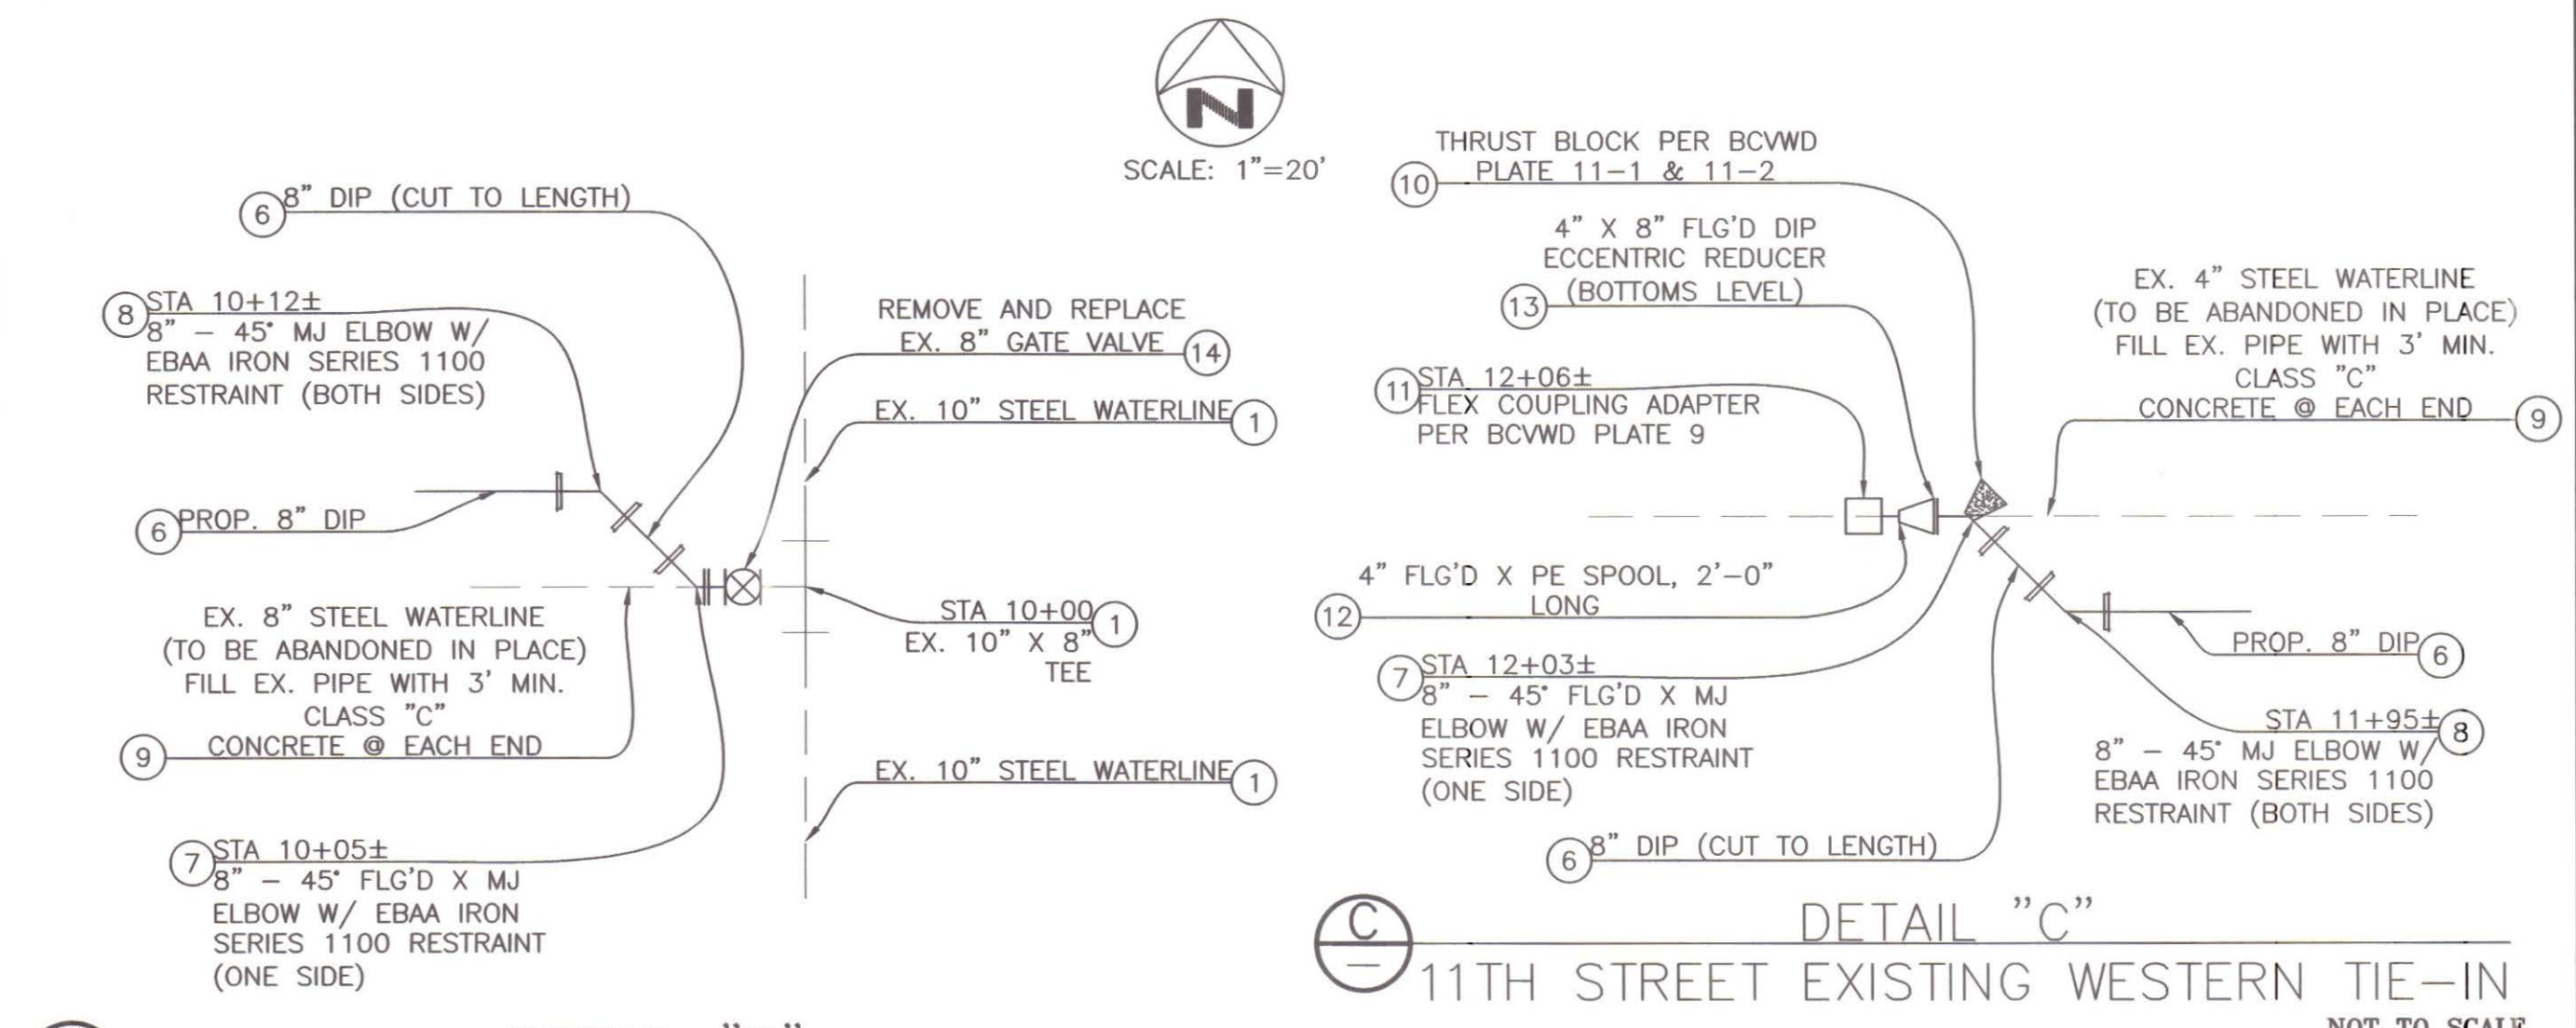 N
SCALE: 1"=20'
6
8" DIP (CUT TO LENGTH)
8
STA 10+12±
8" - 45° MJ ELBOW W/
EBAA IRON SERIES 1100
RESTRAINT (BOTH SIDES)
6
PROP. 8" DIP
EX. 8" STEEL WATERLINE
(TO BE ABANDONED IN PLACE)
FILL EX. PIPE WITH 3' MIN.
CLASS "C"
CONCRETE @ EACH END
9
7
STA 10+05±
8" - 45° FLG'D X MJ
ELBOW W/ EBAA IRON
SERIES 1100 RESTRAINT
(ONE SIDE)
REMOVE AND REPLACE
EX. 8" GATE VALVE
14
EX. 10" STEEL WATERLINE
1
STA 10+00
EX. 10" X 8"
TEE
1
EX. 10" STEEL WATERLINE
1
THRUST BLOCK PER BCVWD
PLATE 11-1 & 11-2
10
4" X 8" FLG'D DIP
ECCENTRIC REDUCER
(BOTTOMS LEVEL)
13
11
STA 12+06±
FLEX COUPLING ADAPTER
PER BCVWD PLATE 9
4" FLG'D X PE SPOOL, 2'-0"
LONG
12
7
STA 12+03±
8" - 45° FLG'D X MJ
ELBOW W/ EBAA IRON
SERIES 1100 RESTRAINT
(ONE SIDE)
6
8" DIP (CUT TO LENGTH)
EX. 4" STEEL WATERLINE
(TO BE ABANDONED IN PLACE)
FILL EX. PIPE WITH 3' MIN.
CLASS "C"
CONCRETE @ EACH END
9
PROP. 8" DIP
6
STA 11+95±
8
8" - 45° MJ ELBOW W/
EBAA IRON SERIES 1100
RESTRAINT (BOTH SIDES)
C
DETAIL "C"
11TH STREET EXISTING WESTERN TIE-IN
NOT TO SCALE